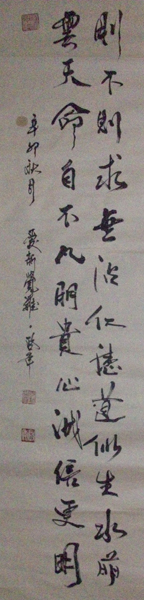 則不則求無沾仁德蓮似生水萠
雲天命自不凡明貴心誠信更明
辛卯秋月 愛新覺羅